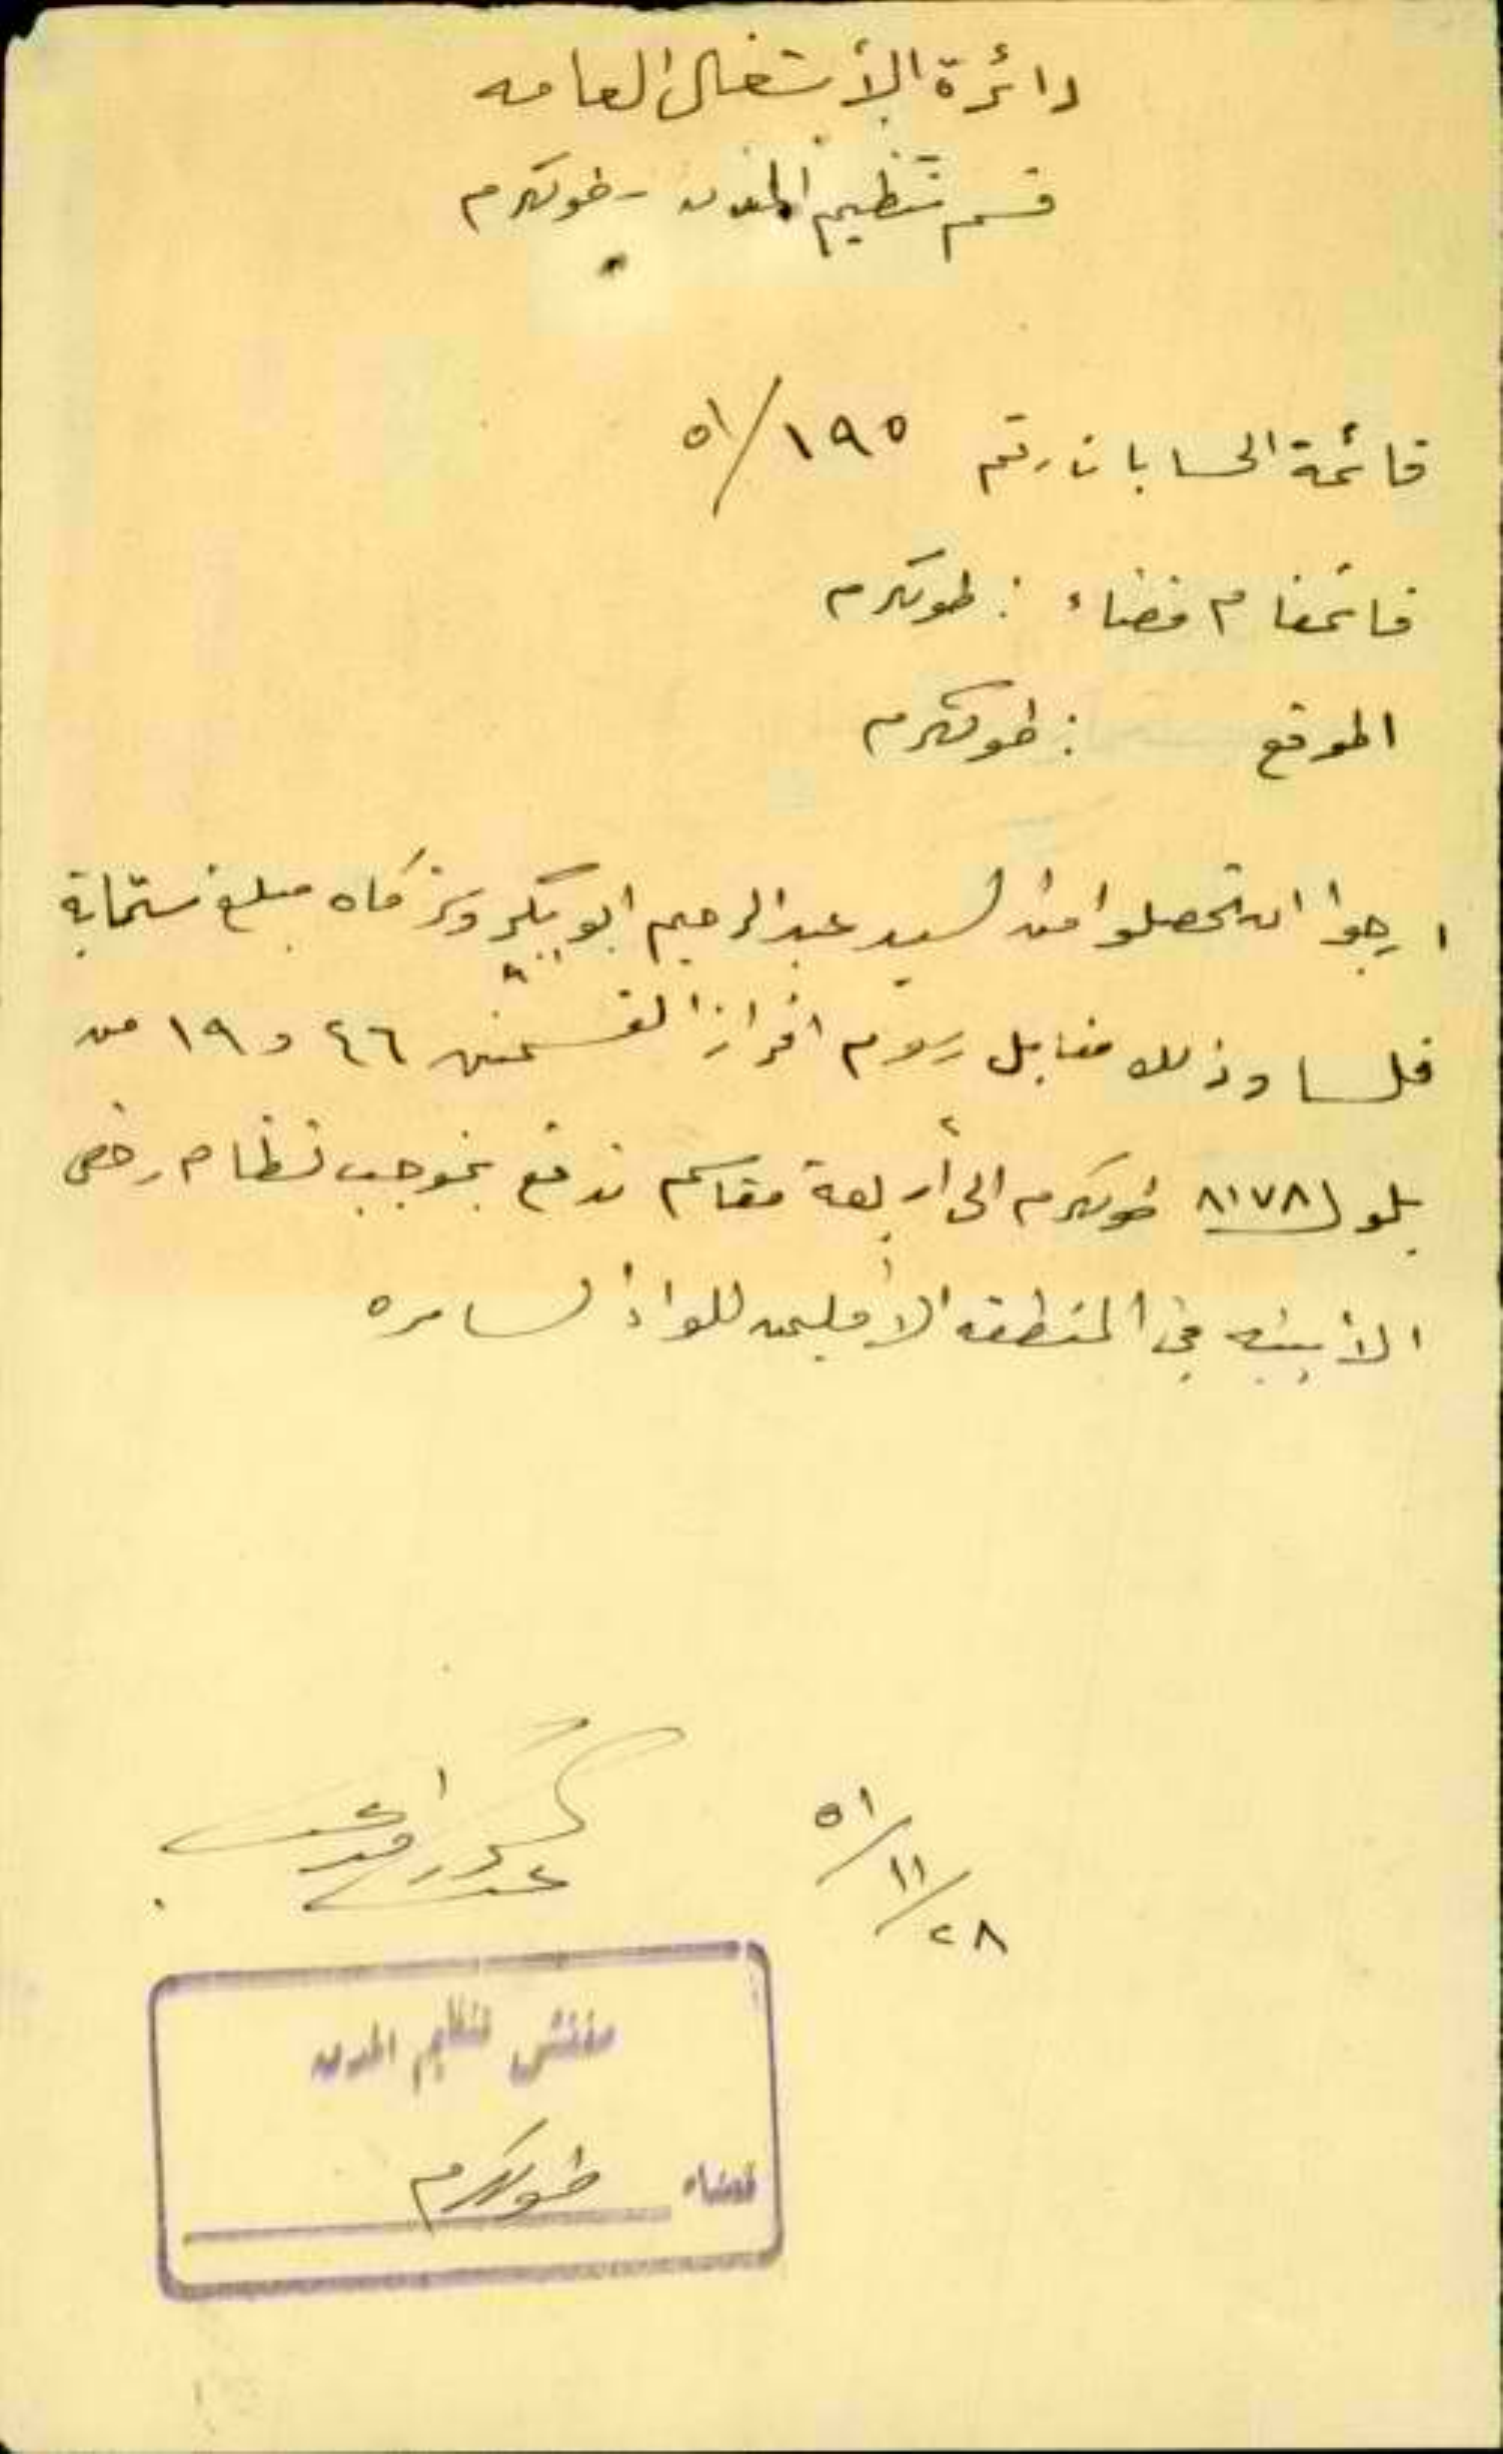 دائرة الأشغال العامه
قسم تنظيم المدن - طولكرم
قائمة الحسابات رقم ١٩٥/٥١
قائمقام قضاء : طولكرم
الموقع : طولكرم
ارجوا ان تحصلوا من السيد عبد الرحيم ابو بكر وشركاه مبلغ ستماية
فلسا وذلك مقابل رسوم افراز القسمين ٤٦ و ١٩ من
بلوك ٨١٧٨ طولكرم الى أربعة مقاسم تدفع بموجب نظام رخص
الأبنيه في المنطقه الأقليميه للواء السامره
٢٨/١١/٥١
مفتش تنظيم المدن
قضاء طولكرم